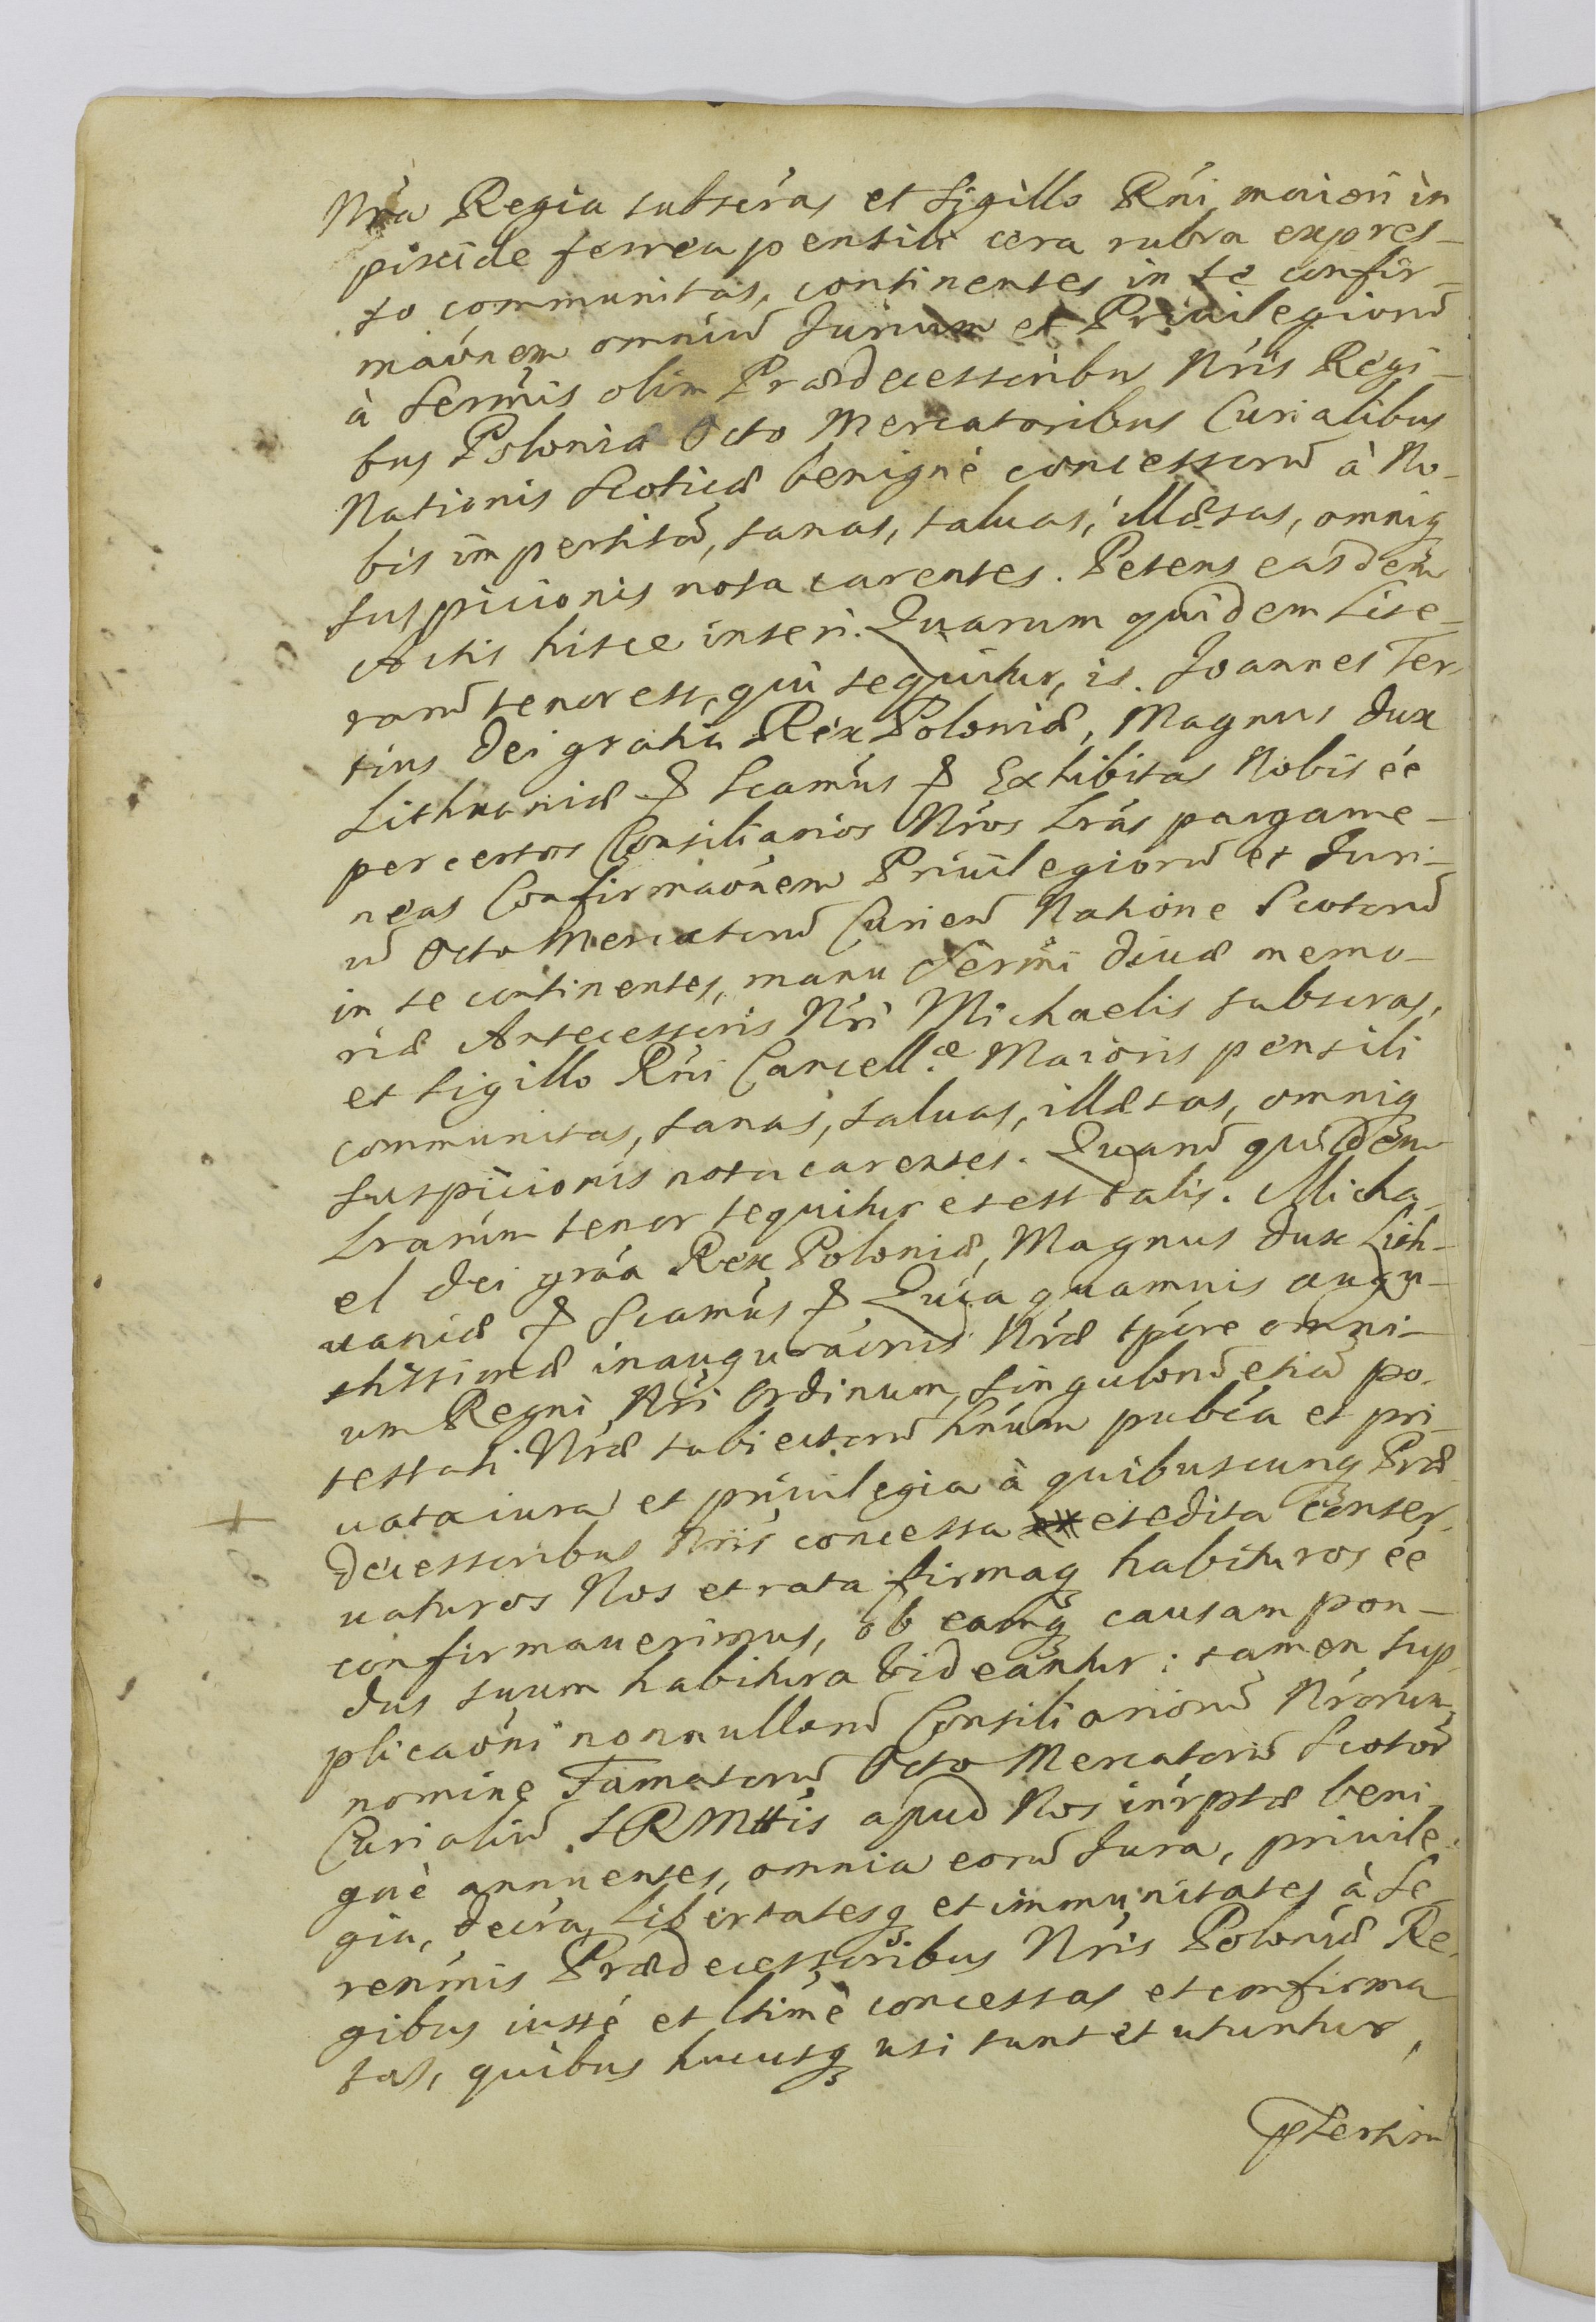 Nra Regia subscras et Sigillo Rni maiori in
pixide ferrea pensili cera rubra expres-
so communitas, continentes in se confir-
maonem omniu Jurium et Priuilegioru
à Sermis olim Prædecessoribus Nris Regi-
bus Poloniæ Octo Mercatoribus Curialibus
Nationis Scoticæ benignè concessoru à No-
bis impertitã, sanas, saluas, illæsas, omniq
suspicionis nota carentes. Petens easdem
Actis hisce inseri. Quarum quidem Lite-
raru tenor est, qui sequitur, is. Joannes Ter-
tius Dei gratia Rex Poloniæ, Magnus Dux
Lithuaniæ & Scamus & Exhibitas Nobis ée
per certos Consiliarios Nros Lras pargame-
neas Confirmaonem Priuilegioru et Juri-
u Octo Mercatoru Curieru Natione Scotoru
in se continentes, manu Sermi diuæ memo-
riæ Antecessoris Nri Michaelis subscras,
et Sigillo Rni Cancell.æ Maioris pensili
communitas, sanas, saluas, illæsas, omniq
suspicionis nota carentes. Quaru quidem
Lrarum tenor sequitur et est talis. Micha-
el Dei gráa Rex Poloniæ, Magnus Dux Lith-
uaniæ & Scamus & Quia quamuis augu-
stissimæ inauguraonis Nræ tpore omni-
um Regni Nri Ordinum, singuloru etiã po-
testati Nræ subiectoru hnum pubca et pri-
uata iura et priuilegia à quibuscunq Præ
decessoribus Nris concessa et edita conser-
uaturos Nos et rata firmaq habituros ée
confirmauerimus, ob eamq causam pon-
dus suum habitura bideantur: tamen sup-
plicaoni nonnulloru Consiliarioru Nrorum,
nomine Famatoru Octo Mercatoru Scotoru
Curialiu SRMttis apud Nos inrptæ beni-
gnè annuentes, omnia eoru Jura, priuile-
gia, decra, libertatesq et immunitates à Se-
renmis Prædecessoribus Nris Poloniæ Re-
gibus iustè et ltimè concessas et confirma
tas, quibus hucusq usi sunt et utuntur,